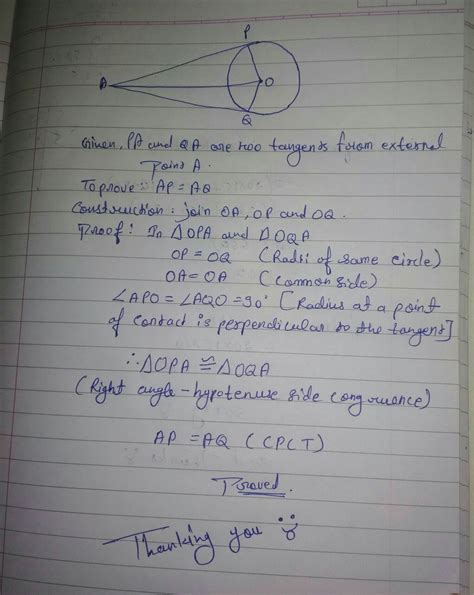 P
A
O
Q
Given, PA and QA are two tangents from external
Point A.
To prove : AP = AQ
Construction : join OA, OP and OQ.
Proof : In △OPA and △OQA
OP = OQ (Radii of same circle)
OA = OA (Common side)
∠APO = ∠AQO = 90° [Radius at a point
of contact is perpendicular to the tangent]
∴ △OPA ≅ △OQA
(Right angle - hypotenuse side congruence)
AP = AQ (CPCT)
Proved.
Thanking you